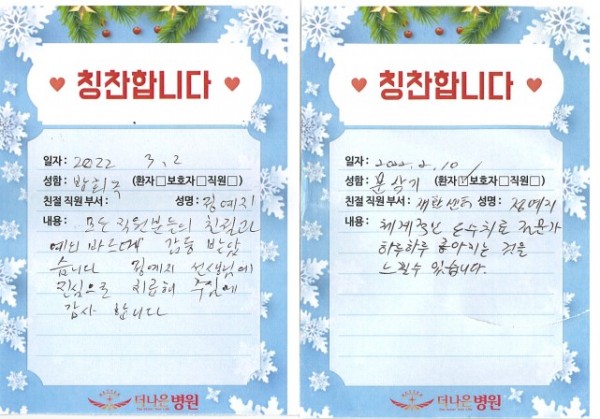 칭찬합니다
일자: 2022 3, 2
성함: 박희국 (환자□보호자□직원□)
친절 직원 부서: 성명: 김예지
내용: 모든 직원분들의 친절과
예의 바르메 감동 받았
습니다 김예지 선생님에
진심으로 치료해 주심에
감사 합니다
더나은병원
칭찬합니다
일자: 2022. 2. 10
성함: 문삼기 (환자☑보호자□직원□)
친절 직원 부서: 재활센타 성명: 김예지
내용: 체계적인 도수치료 덕분에
하루하루 좋아지는 것을
느낄수 있습니다.
더나은병원